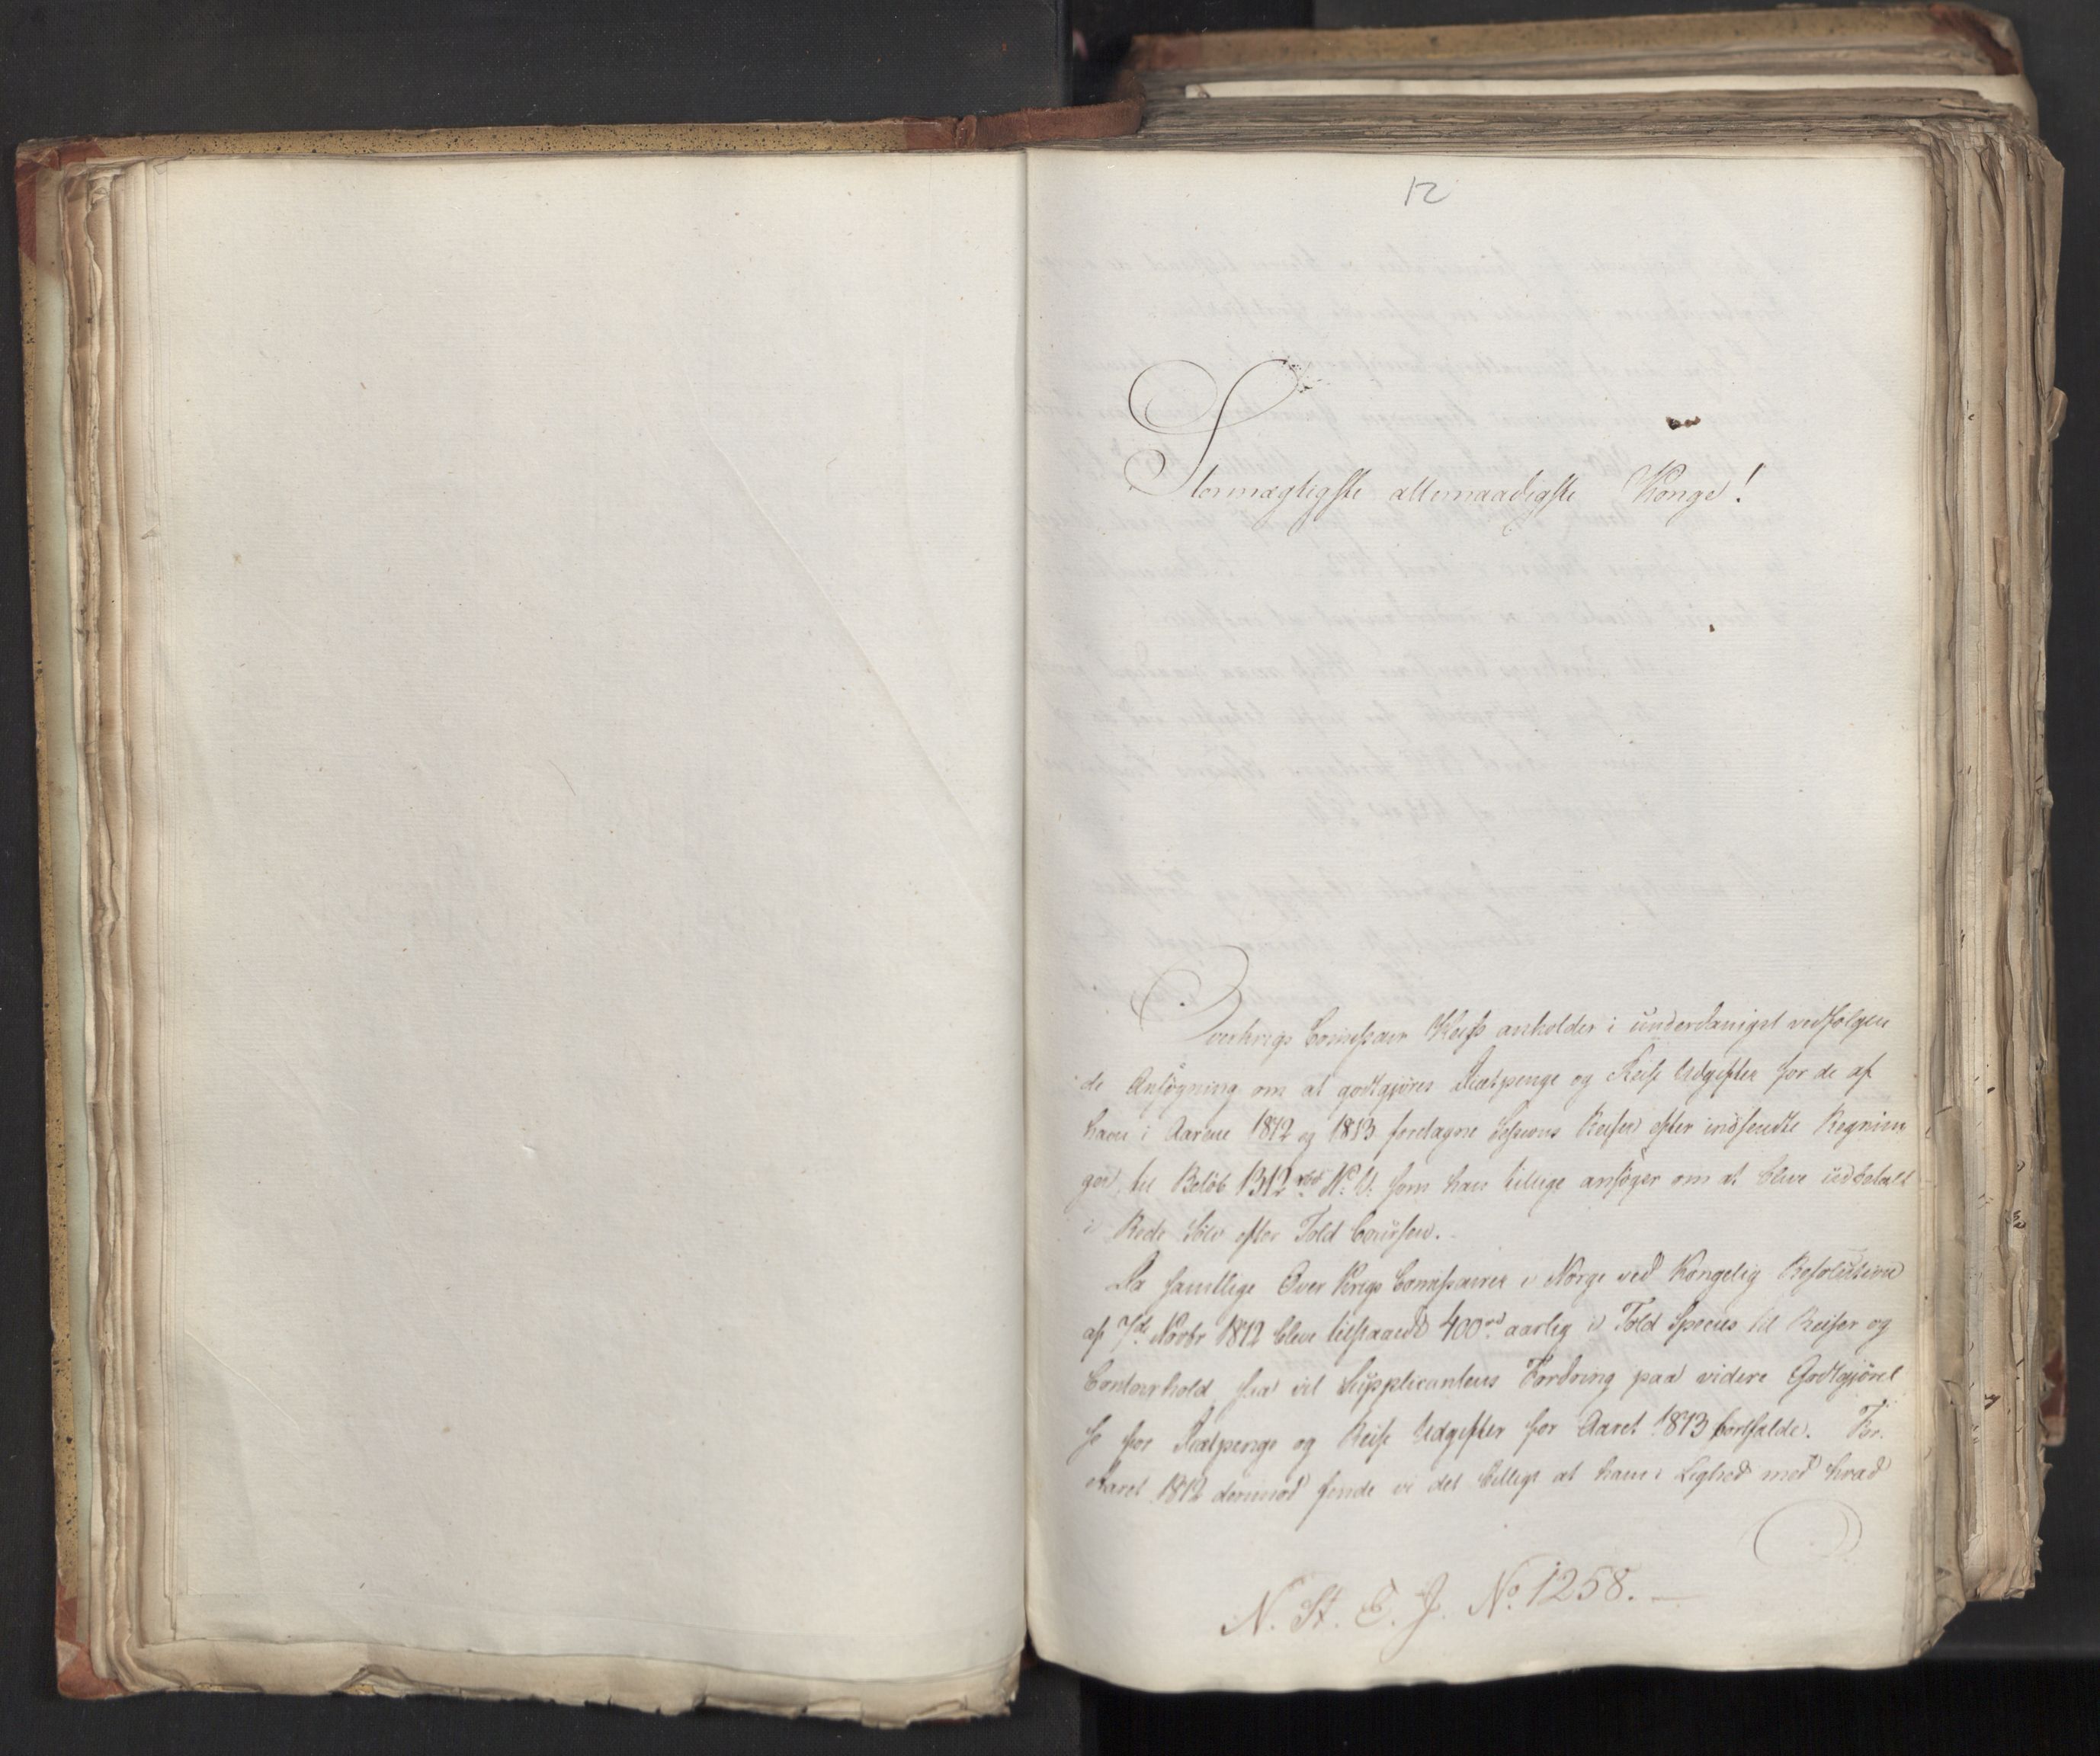 12
Stormægtigste allernaadigste Konge!
Overkrigs Comissair Weiss anholder i underdanigst vedfølgen
de Ansøgning om at godtgjøres Diætpenge og Reise Udgifter for de af
ham i Aarene 1812 og 1813 foretagne Sessions Reiser efter indsendte Regnin
ger, til Beløb 1312 rbd N: V: som han tillige ansøger om at blive udbetalt
i Rede Sølv efter Told Coursen.
Da samtlige Over Krigs Comissairer i Norge ved Kongelig Resolution
af 7de Novbr 1812 bleve tilstaaede 400 rd aarlig i Told Species til Reiser og
Contoirhold, saa vil Supplicantens Fordring paa videre Godtgjørel
se for Diætpenge og Reise Udgifter for Aaret 1813 bortfalde. For
Aaret 1812 derimod finde vi det billigt at ham i Lighed med hvad
N. St. E. J. No. 1258.